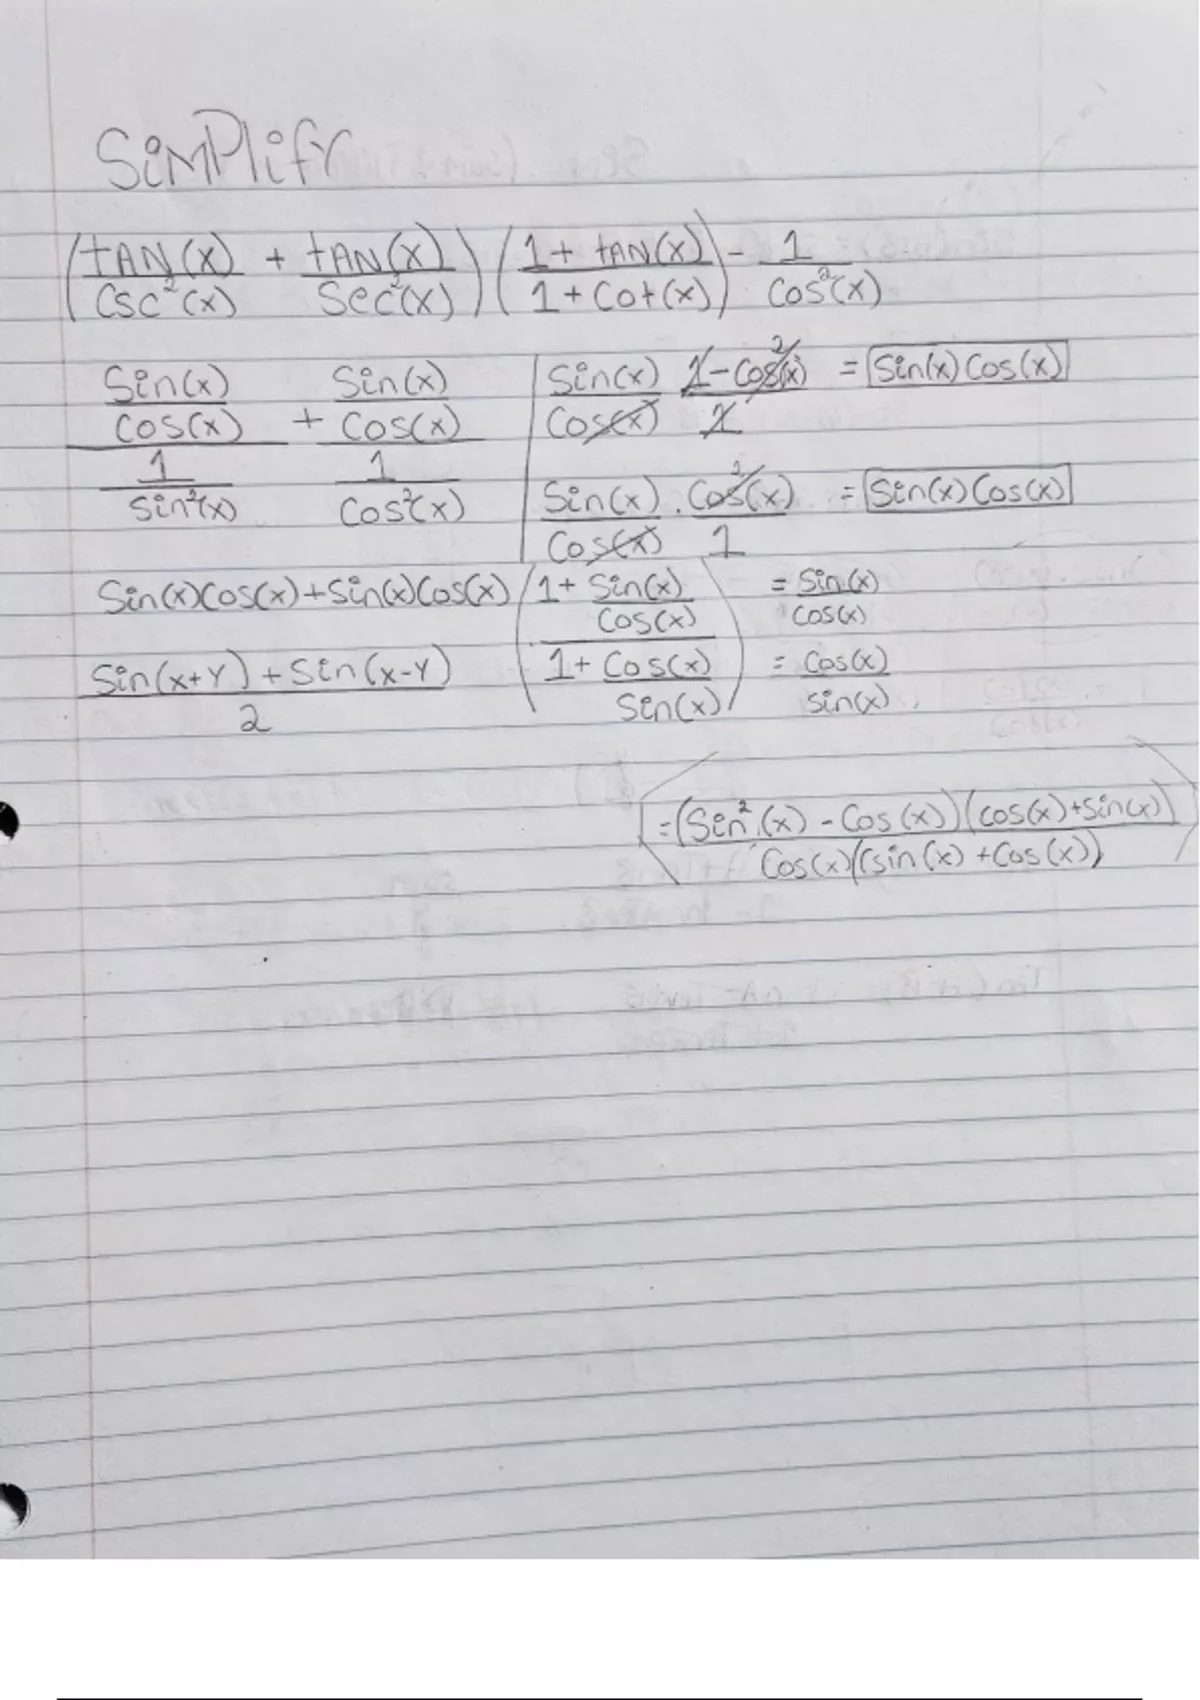 SimPlify
(tAN(x)/Csc²(x) + tAN(x)/Sec²(x)) (1 + tAN(x)/1 + Cot(x)) - 1/Cos²(x)
Sin(x)/Cos(x) / 1/Sin²(x) + Sin(x)/Cos(x) / 1/Cos²(x)
Sin(x)/Cos(x) 1-Cos²(x)/1 = Sin(x)Cos(x)
Sin(x)/Cos(x) · Cos²(x)/1 = Sin(x)Cos(x)
Sin(x)Cos(x)+Sin(x)Cos(x) (1+ Sin(x)/Cos(x) / 1+ Cos(x)/Sin(x)) = Sin(x)/Cos(x)
= Cos(x)/Sin(x)
Sin(x+Y)+Sin(x-Y)/2
=(Sin²(x) - Cos(x))(cos(x)+sin(x))/Cos(x)(sin(x)+Cos(x))